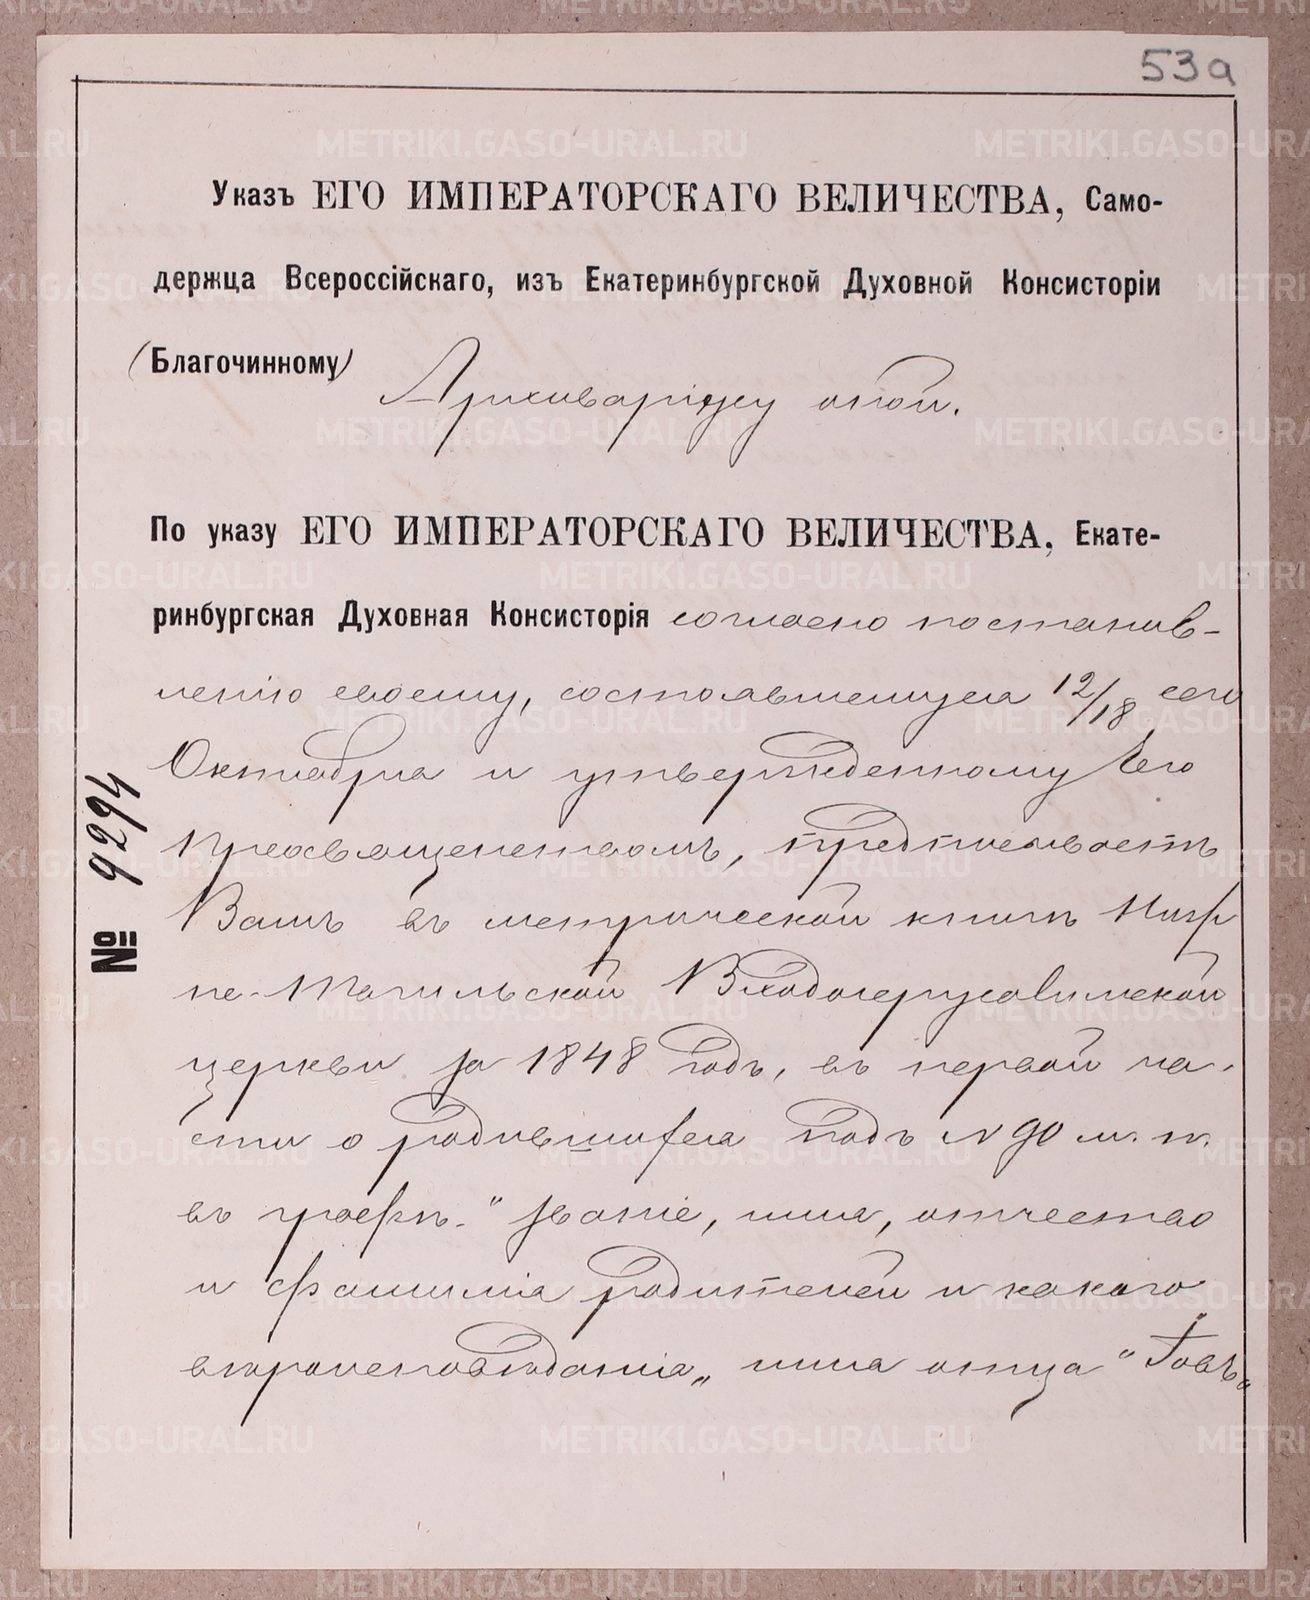 53а
Указъ ЕГО ИМПЕРАТОРСКАГО ВЕЛИЧЕСТВА, Само-
держца Всероссійскаго, изъ Екатеринбургской Духовной Консисторіи
(Благочинному) Архиваріусу оной.
По указу ЕГО ИМПЕРАТОРСКАГО ВЕЛИЧЕСТВА, Екате-
ринбургская Духовная Консисторія согласно постанов-
ленію своему, состоявшемуся 12/18 сего
Октября и утвержденному Его
Преосвященствомъ, предписываетъ
Вамъ въ метрической книгѣ Ниж
не-Тагильской Входоіерусалимской
церкви за 1848 годъ, въ первой ча-
сти о родившихся подъ № 90 м. п.
въ графѣ „званіе, имя, отчество
и фамилія родителей и какого
вѣроисповѣданія„ имя отца "Іовъ„
№ 9294
METRIKI.GASO-URAL.RU